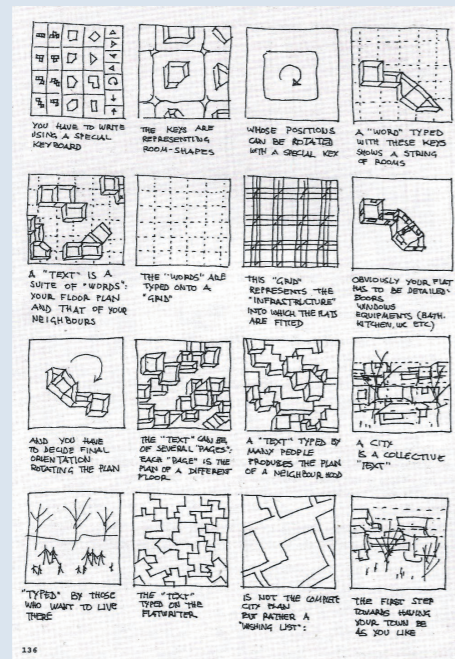 YOU HAVE TO WRITE
USING A SPECIAL
KEYBOARD
THE KEYS ARE
REPRESENTING
ROOM-SHAPES
WHOSE POSITIONS
CAN BE ROTATED
WITH A SPECIAL KEY
A "WORD" TYPED
WITH THESE KEYS
SHOWS A STRING
OF ROOMS
A "TEXT" IS A
SUITE OF "WORDS":
YOUR FLOOR PLAN
AND THAT OF YOUR
NEIGHBOURS
THE "WORDS" ARE
TYPED ONTO A
"GRID"
THIS "GRID"
REPRESENTS THE
"INFRASTRUCTURE"
INTO WHICH THE FLATS
ARE FITTED
OBVIOUSLY YOUR FLAT
HAS TO BE DETAILED:
DOORS
WINDOWS
EQUIPMENTS (BATH.
KITCHEN, WC ETC.)
AND YOU HAVE
TO DECIDE FINAL
ORIENTATION
ROTATING THE PLAN
THE "TEXT" CAN BE
OF SEVERAL "PAGES":
EACH "PAGE" IS THE
PLAN OF A DIFFERENT
FLOOR
A "TEXT" TYPED BY
MANY PEOPLE
PRODUCES THE PLAN
OF A NEIGHBOUR HOOD
A CITY
IS A COLLECTIVE
"TEXT"
"TYPED" BY THOSE
WHO WANT TO LIVE
THERE
THE "TEXT"
TYPED ON THE
FLATWRITER
IS NOT THE COMPLETE
CITY PLAN
BUT RATHER A
"WISHING LIST":
THE FIRST STEP
TOWARDS HAVING
YOUR TOWN BE
AS YOU LIKE
136